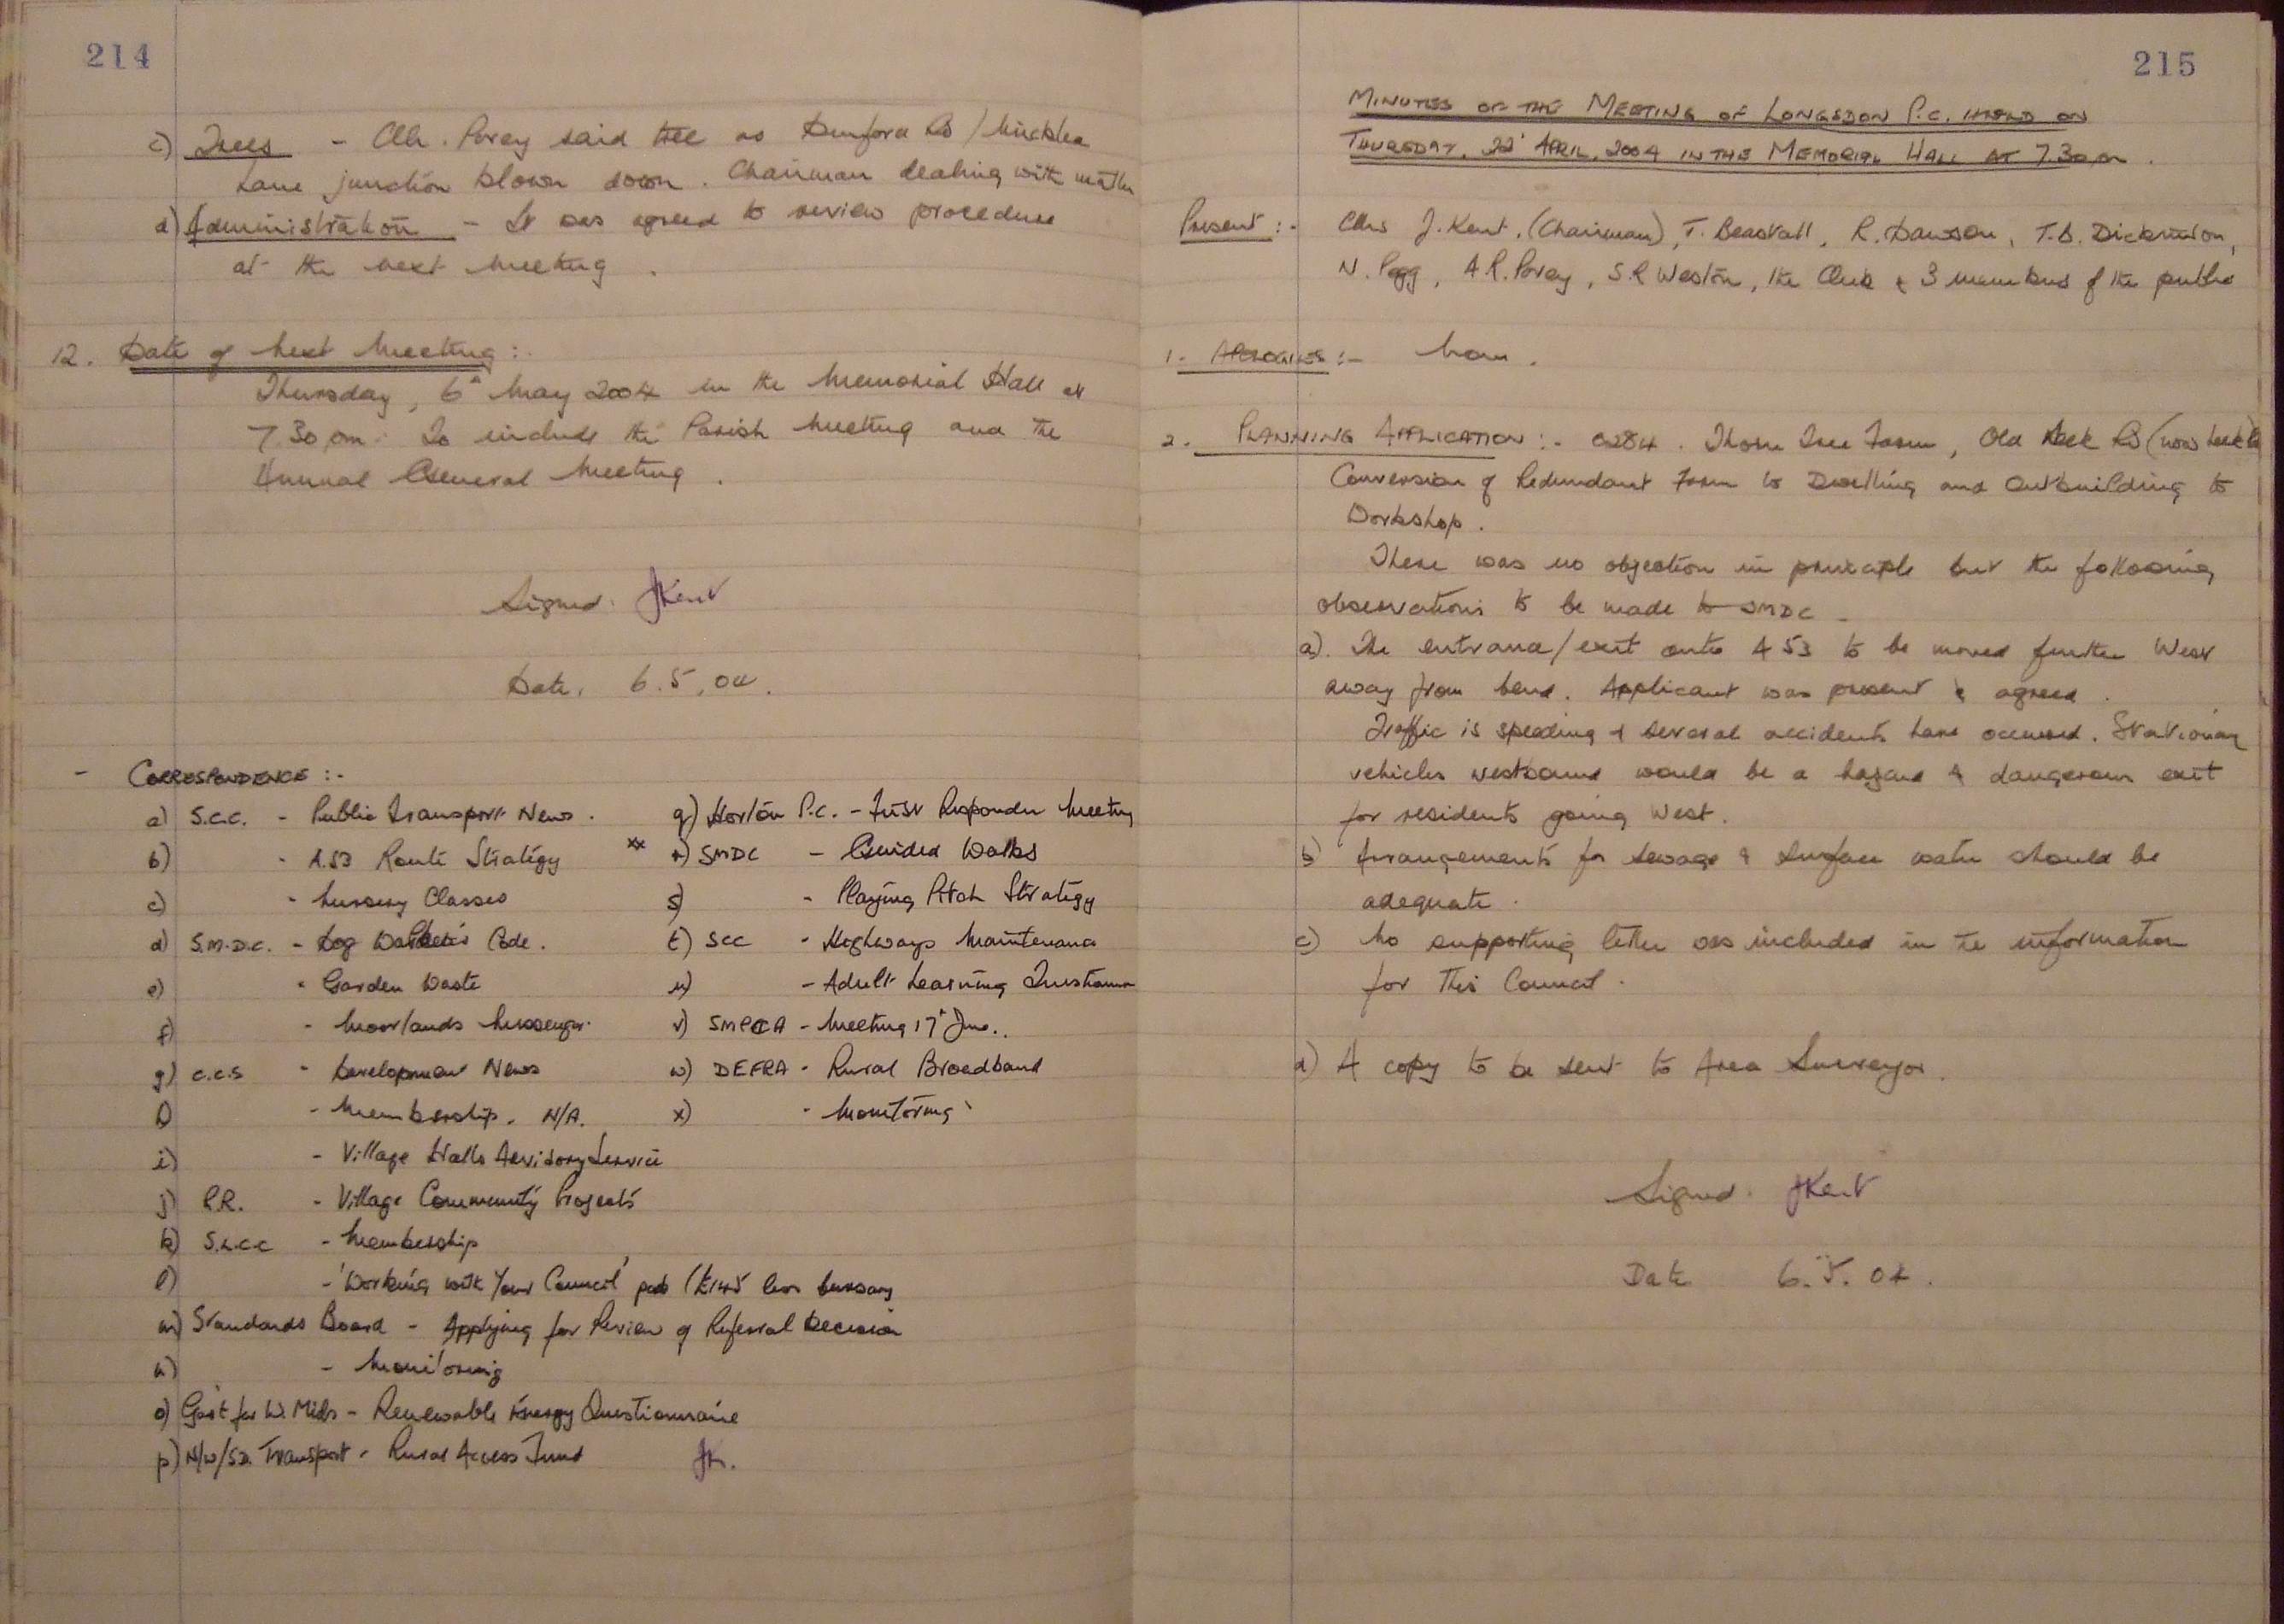 214
c) Trees - Cllr. Povey said tree at Denford Rd / Micklea
Lane junction blown down. Chairman dealing with matter
d) Administration - It was agreed to review procedure
at the next meeting.
12. Date of Next Meeting :-
Thursday, 6th May 2004 in the Memorial Hall at
7.30pm. To include the Parish Meeting and the
Annual General Meeting.
Signed: JKent
Date. 6.5.04.
- CORRESPONDENCE :-
a) S.C.C. - Public Transport News.
b) - A.53 Route Strategy
c) - Nursery Classes
d) S.M.D.C. - Dog Walker's Code.
e) - Garden Waste
f) - Moorlands Messenger.
g) C.C.S - Development News
- Membership. N/A.
i) - Village Halls Advisory Service
j) R.R. - Village Community Projects
k) S.L.C.C - Membership
l) - 'Working with Your Council' (£145 less bursary
m) Standards Board - Applying for Review of Referral Decision
n) - Monitoring
o) Gov't for W. Mids - Renewable Energy Questionnaire
p) N/W/SD. Transport - Rural Access Fund
q) Horton P.C. - First Responder Meeting
xx r) SMDC - Guided Walks
s) - Playing Pitch Strategy
t) SCC - Highways Maintenance
u) - Adult Learning
v) SMPCA - Meeting 17th
w) DEFRA - Rural Broadband
x) - Monitoring
JK.
215
MINUTES OF THE MEETING OF LONGSDON P.C. HELD ON
THURSDAY, 22' APRIL, 2004 IN THE MEMORIAL HALL AT 7.30pm.
Present :- Cllrs J. Kent, (Chairman), T. Beardall, R. Dawson, T.D. Dickinson,
N. Pegg, A.R. Povey, S.R Weston, the Clerk & 3 members of the public
1. APOLOGIES :- None.
2. PLANNING APPLICATION :- 0284. Thorn Tree Farm, Old Leek Rd (now Leek Rd
Conversion of Redundant Farm to Dwelling and Outbuilding to
Workshop.
There was no objection in principle but the following
observations to be made to SMDC
a). The entrance/exit onto A53 to be moved further West
away from bend. Applicant was present & agreed.
Traffic is speeding & several accidents have occurred. Stationary
vehicles westbound would be a hazard & dangerous exit
for residents going West.
b) Arrangements for sewage & surface water should be
adequate.
c) No supporting letter was included in the information
for This Council.
d) A copy to be sent to Area Surveyor.
Signed: JKent
Date 6.5.04.